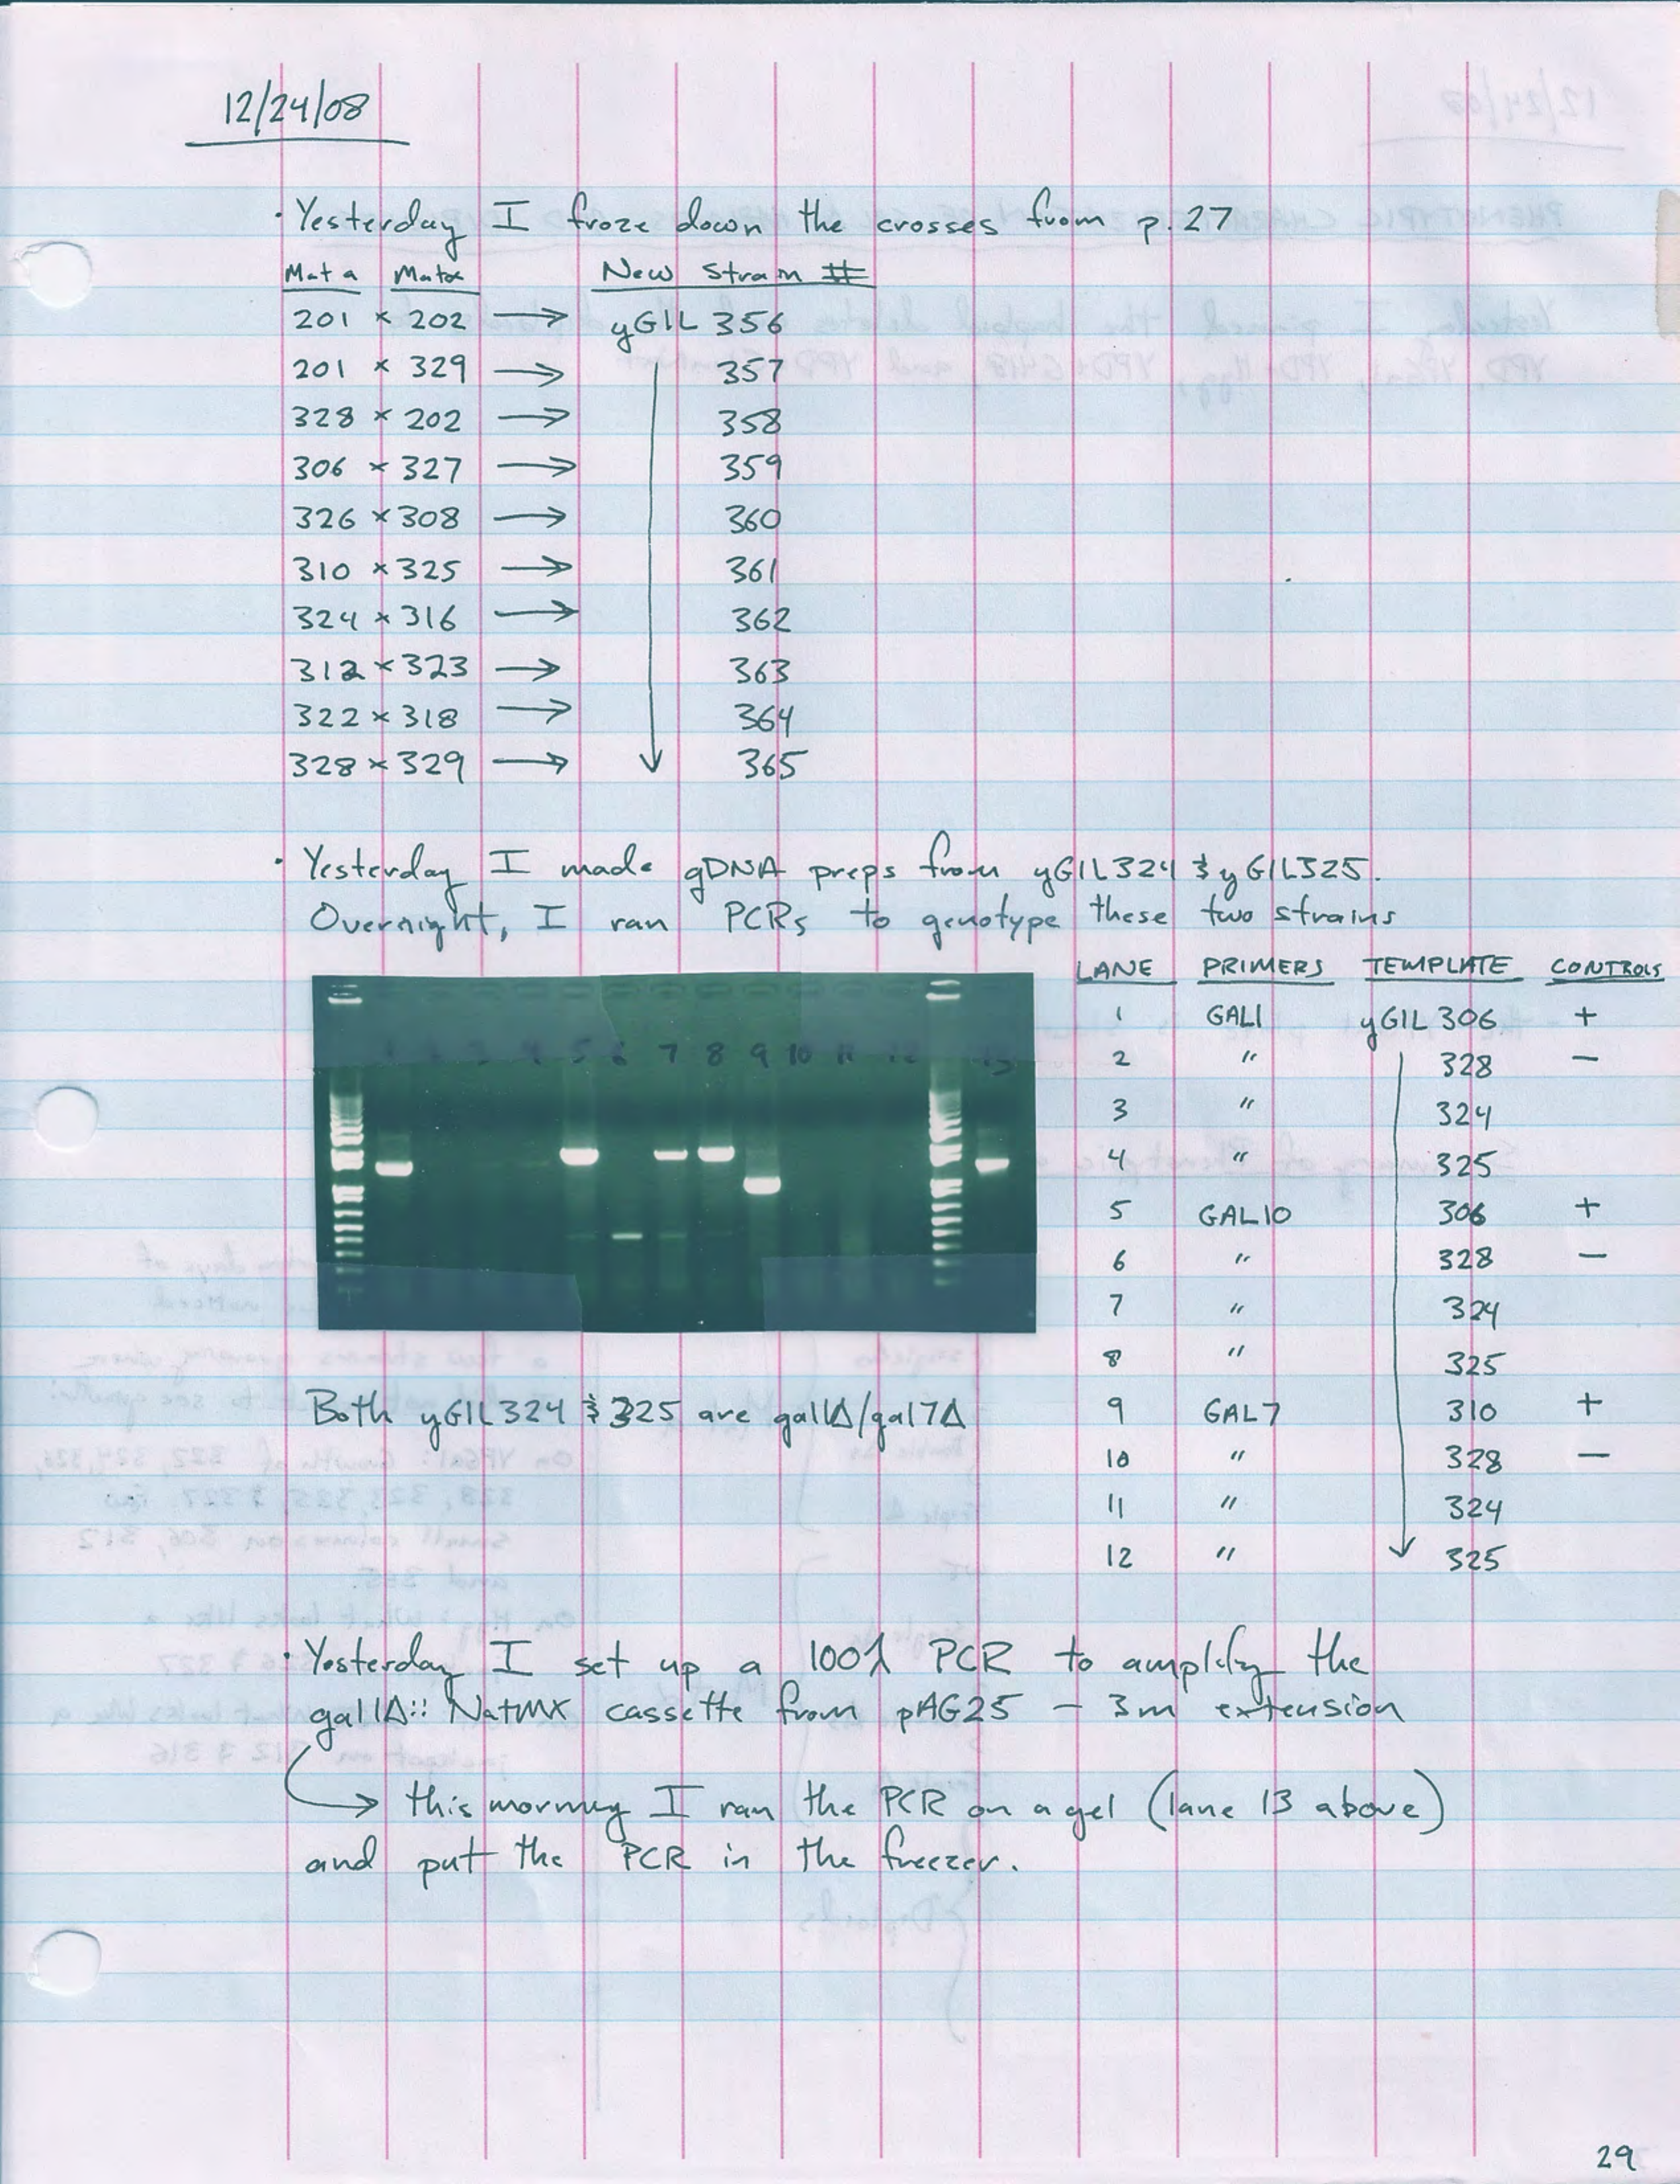 12/24/08
· Yesterday I froze down the crosses from p. 27
Mat a Matα New Strain #
201 × 202 → yGIL 356
201 × 329 → 357
328 × 202 → 358
306 × 327 → 359
326 × 308 → 360
310 × 325 → 361
324 × 316 → 362
312 × 323 → 363
322 × 318 → 364
328 × 329 → 365
· Yesterday I made gDNA preps from yGIL324 & yGIL325.
Overnight, I ran PCRs to genotype these two strains
LANE PRIMERS TEMPLATE CONTROLS
1 GAL1 yGIL 306 +
2 " 328 —
3 " 324
4 " 325
5 GAL10 306 +
6 " 328 —
7 " 324
8 " 325
9 GAL7 310 +
10 " 328 —
11 " 324
12 " 325
1 2 3 4 5 6 7 8 9 10 11 12 13
Both yGIL324 & 325 are gal1Δ/gal7Δ
· Yesterday I set up a 100λ PCR to amplify the
gal1Δ:: NatMX cassette from pAG25 – 3m extension
→ this morning I ran the PCR on a gel (lane 13 above)
and put the PCR in the freezer.
29